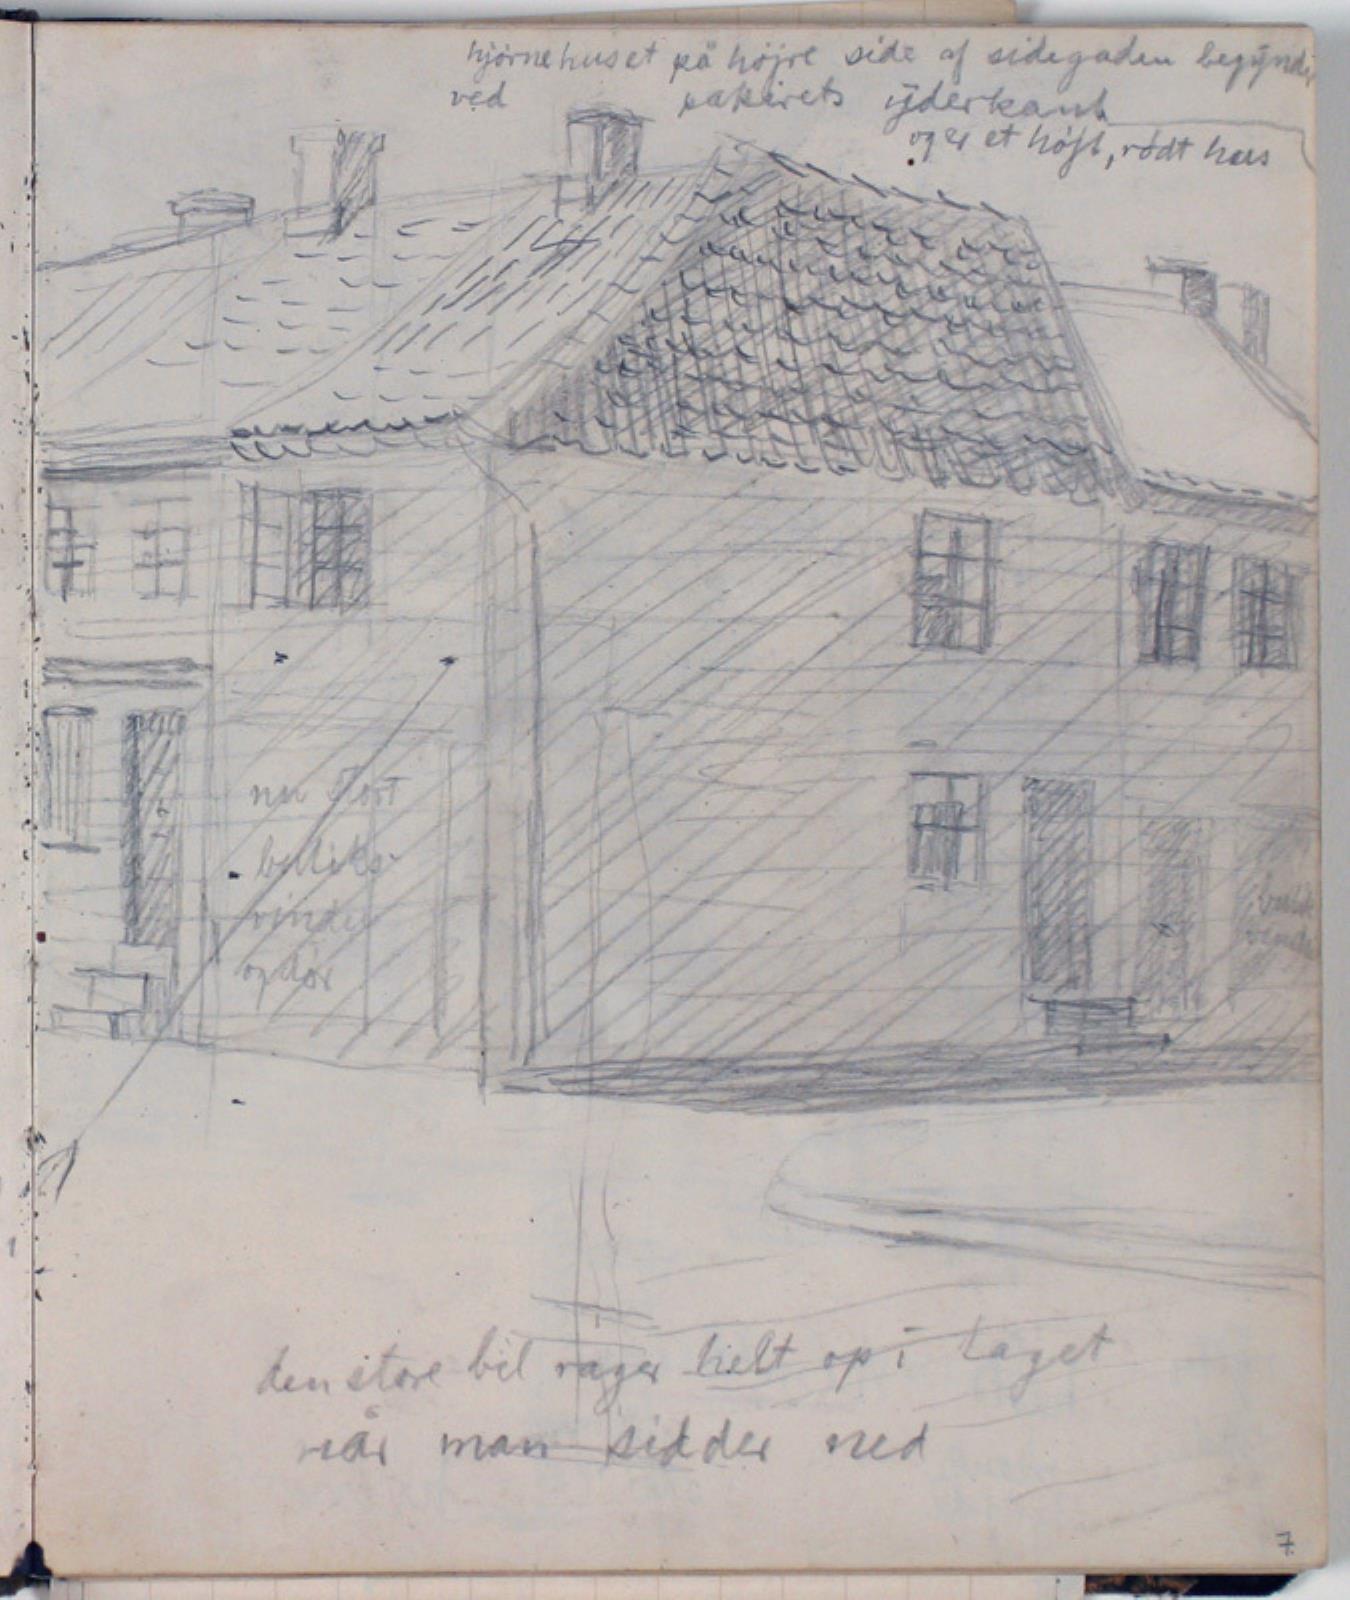 hjørnehuset på højre side af sidegaden begynder
ved papirets yderkant
og er et højt, rødt hus
nu stort
butiks-
vindue
og dør
butiks
vindue
den store bil rager helt op i taget
når man sidder ned
7